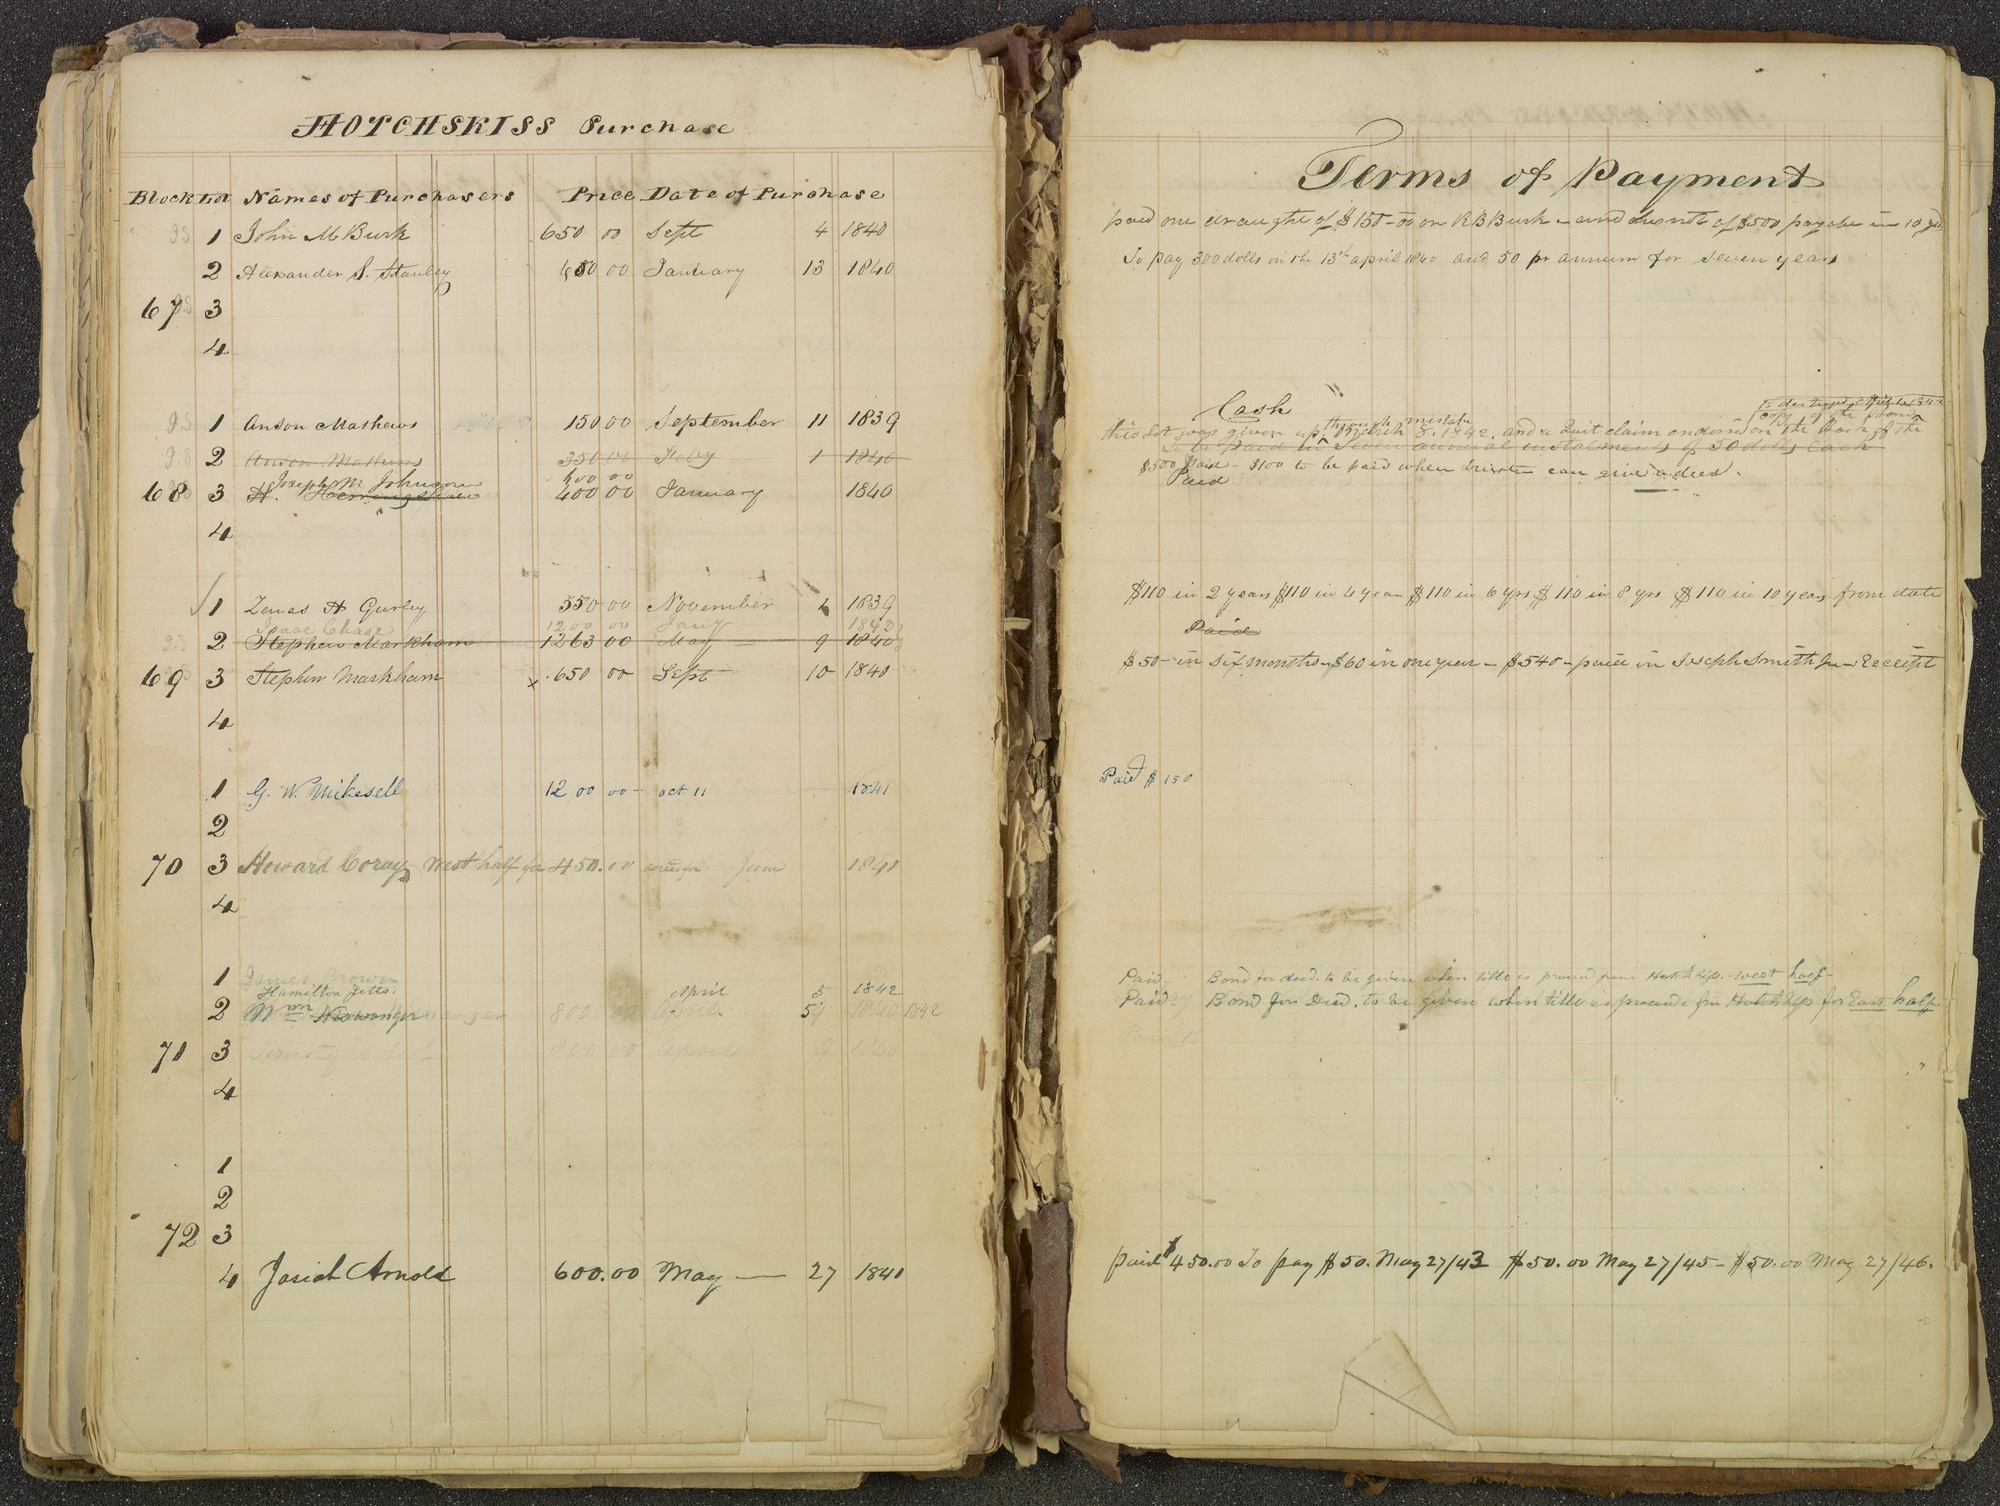 HOTCHSKISS Purchase
Block Lot Names of Purchasers Price Date of Purchase
1 John M Burk 650 00 Sept 4 1840
2 Alexander S. Stanley 650 00 January 13 1840
67 3
4
1 Anson Mathews 150 00 September 11 1839
2 Anson Mathews 350 00 Feby 1 1840
Joseph M. Johnson 600 00
68 3 H. 400 00 January 1840
4
1 Zenas H Gurley 550 00 November 1839
Isaac Chase 1200 00 Jany 1843
2 Stephen Markham 1263 00 May 9 1840
69 3 Stephen Markham 650 00 Sept 10 1840
4
1 G. W. Mikesell 12 00 00 oct 11 1841
2
70 3 Howard Coray West half for 450.00 June 1841
4
1 James Brown
Hamilton Jetts. April 5 1842
2 Wm 800 00 April 1840 1842
71 3 800 00 April 1840
4
1
2
72 3
4 Josiah Arnold 600.00 May 27 1840
Terms of Payment
paid one draught of $150-00 on R B Burk - and due note of $500 payable in 10 yd
To pay 300 dolls on the 13th april 1840 and 50 pr annum for seven years
Cash
copy of the
through mistake
this Lot was given up March 5. 1842. and a Quit claim endorsed on the back of the
to be paid in Seven annual instalments of 50 dolls Each
$500 Paid - $100 to be paid when can give a deed.
Paid
$110 in 2 years $110 in 4 year $110 in 6 yrs $110 in 8 yrs $110 in 10 years from date
Paid
$50- in six months - $60 in one year - $540 - paid in Joseph Smith Jun Receipt
Paid $150
Paid Bond for deed. to be given when title is from west half
Paid Bond for Deed. to be given when title is for East half
paid $450.00 To pay $50. May 27/43 $50.00 May 27/45 - $50.00 May 27/46.